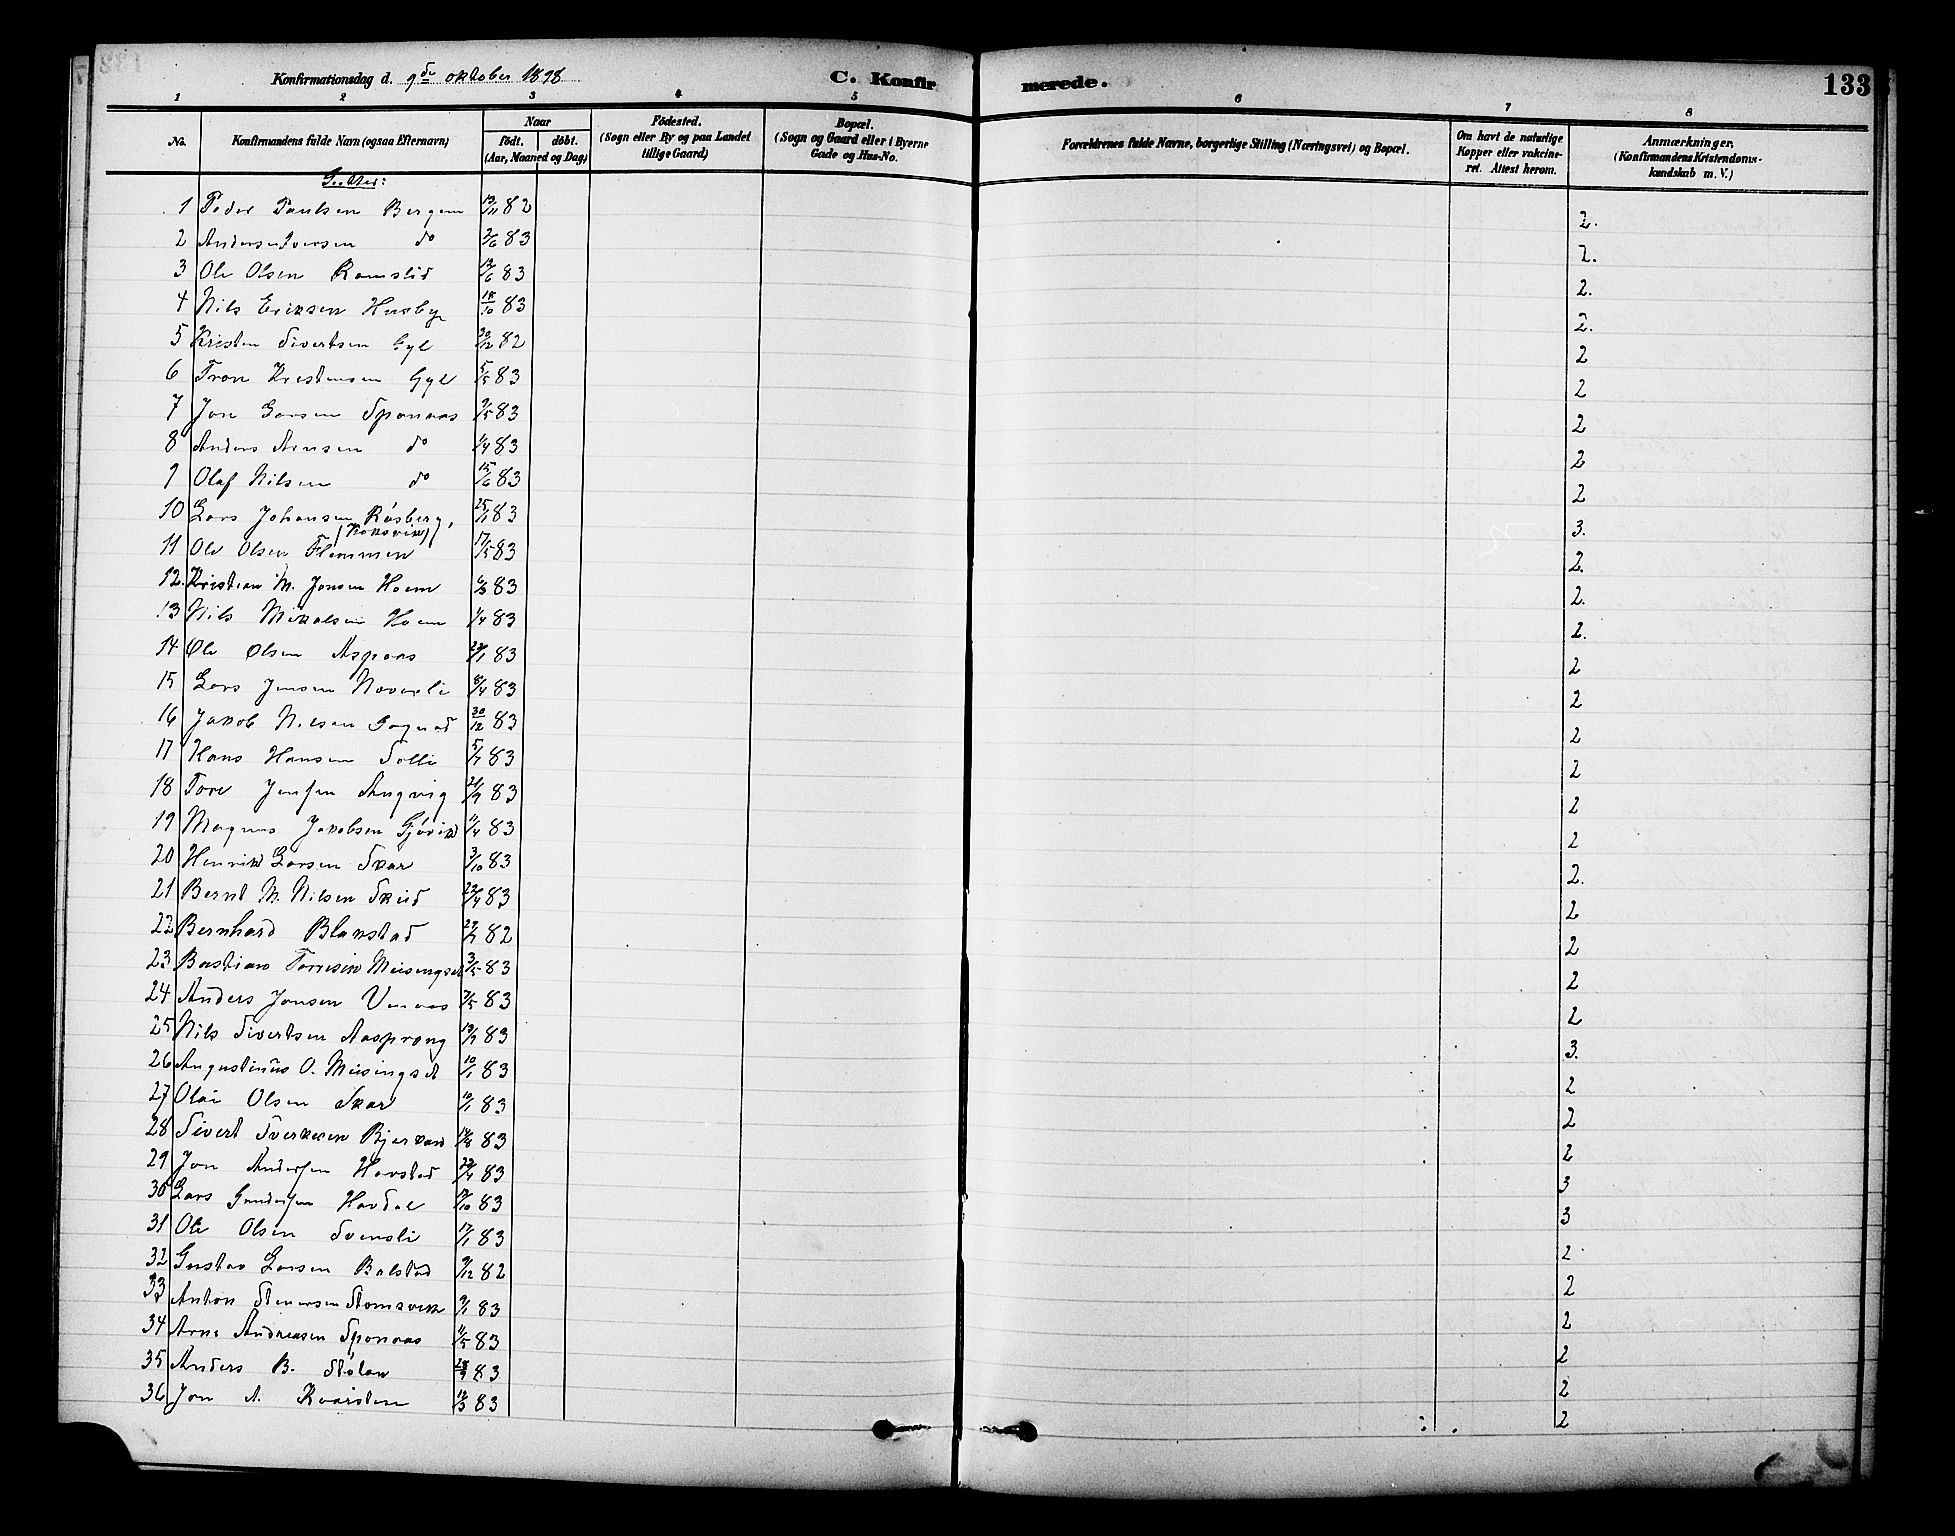 Konfirmationsdag d. 9de oktober 1898
C. Konfirmerede.
133
1 2 3 4 5 6 7 8
No.
Konfirmandens fulde Navn (ogsaa Efternavn)
Naar
födt. döbt.
(Aar, Maaned og Dag)
Födested.
(Sogn eller By og paa Landet
tillige Gaard)
Bopæl.
(Sogn og Gaard eller i Byerne
Gade og Hus-No.
Forældrenes fulde Navne, borgerlige Stilling (Næringsvei) og Bopæl.
Om havt de naturlige
Kopper eller vakcine-
ret. Attest herom.
Anmærkninger.
(Konfirmandens Kristendoms-
kundskab m. V.)
Gutter:
1 Peder Paulsen Bergem 19/11 82 2.
2 Anders Iversen do 2/6 83 2.
3 Ole Olsen Ramslid 12/6 83 2.
4 Nils Eriksen Husby 18/10 83 2.
5 Kristen Sivertsen Gyl 30/12 82 2
6 Tron Kristensen Gyl 5/5 83 2
7 Jon Larsen Sponaas 9/5 83 2
8 Anders Arnsen do 1/4 83 2
9 Olaf Nilsen do 15/6 83 2
10 Lars Johansen Røsberg, 25/1 83 3.
(Koksvik)
11 Ole Olsen Flemmen 17/5 83 2.
12. Kristian M. Jonsen Hoem 83 2.
13 Nils Mikalsen Hoem 1/4 83 2.
14 Ole Olsen Aspaas 83 2
15 Lars Jensen Noverli 8/4 83 2
16 Jakob Nilsen Sognad 30/12 83 2
17 Hans Hansen Solli 5/7 83 2
18 Tore Jensen Angvig 21/9 83 2
19 Magnus Jakobsen Gjøvik 11/4 83 2
20 Henrik Larsen Skar 3/10 83 2.
21 Bernt M. Nilsen Skud 22/4 83 2
22 Bernhard Blakstad 82 2
23 Bastian Torresen Meisingset 3/5 83 2
24 Anders Jonsen Venaas 7/5 83 2
25 Nils Sivertsen Aasprong 83 3.
26 Augustinus O. Meisingset 10/1 83 2
27 Olai Olsen Skar 83 2
28 Sivert Sverksen Bjerkan 83 2
29 Jon Andersen Havstad 83 3
30 Lars Gundersen Havdal 83 3
31 Ole Olsen Svensli 17/1 83 2
32 Gustav Larsen Balstad 9/12 82 2
33 Anton Stenersen Stomsvik 9/1 83 2
34 Arne Andreasen Sponaas 11/5 83 2
35 Anders B. Stølan 83 2
36 Jon A. Kvaisten 83 2